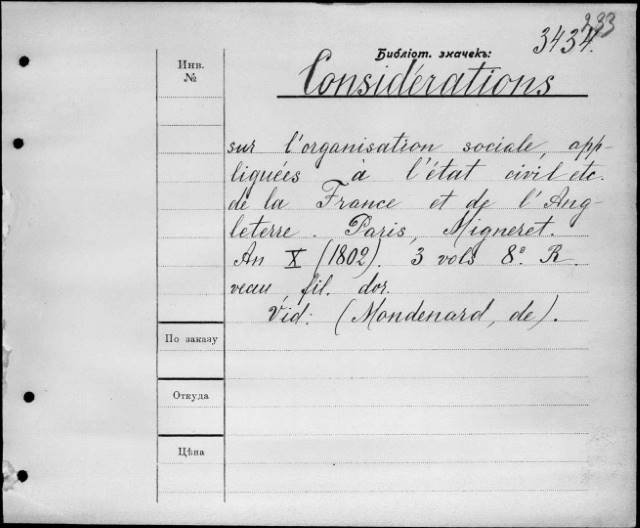 233
3434.
Библіот. значекъ:
Инв.
№
Considérations
sur l'organisation sociale, app-
liquées à l'état civil etc.
de la France et de l'Ang-
leterre. Paris, Migneret.
An X (1802). 3 vols 8º. R.
veau, fil. dor.
Vid: (Mondenard, de).
По заказу
Откуда
Цѣна